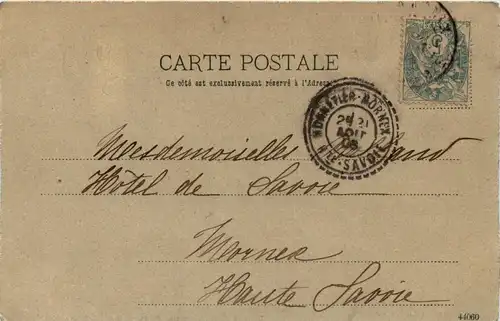 CARTE POSTALE
Ce côté est exclusivement réservé à l'Adresse
MONNETIER-MORNEX
21
AOUT
HTE-SAVOIE
Mesdemoiselles
Hôtel de Savoie
Mornex
Haute Savoie
44060